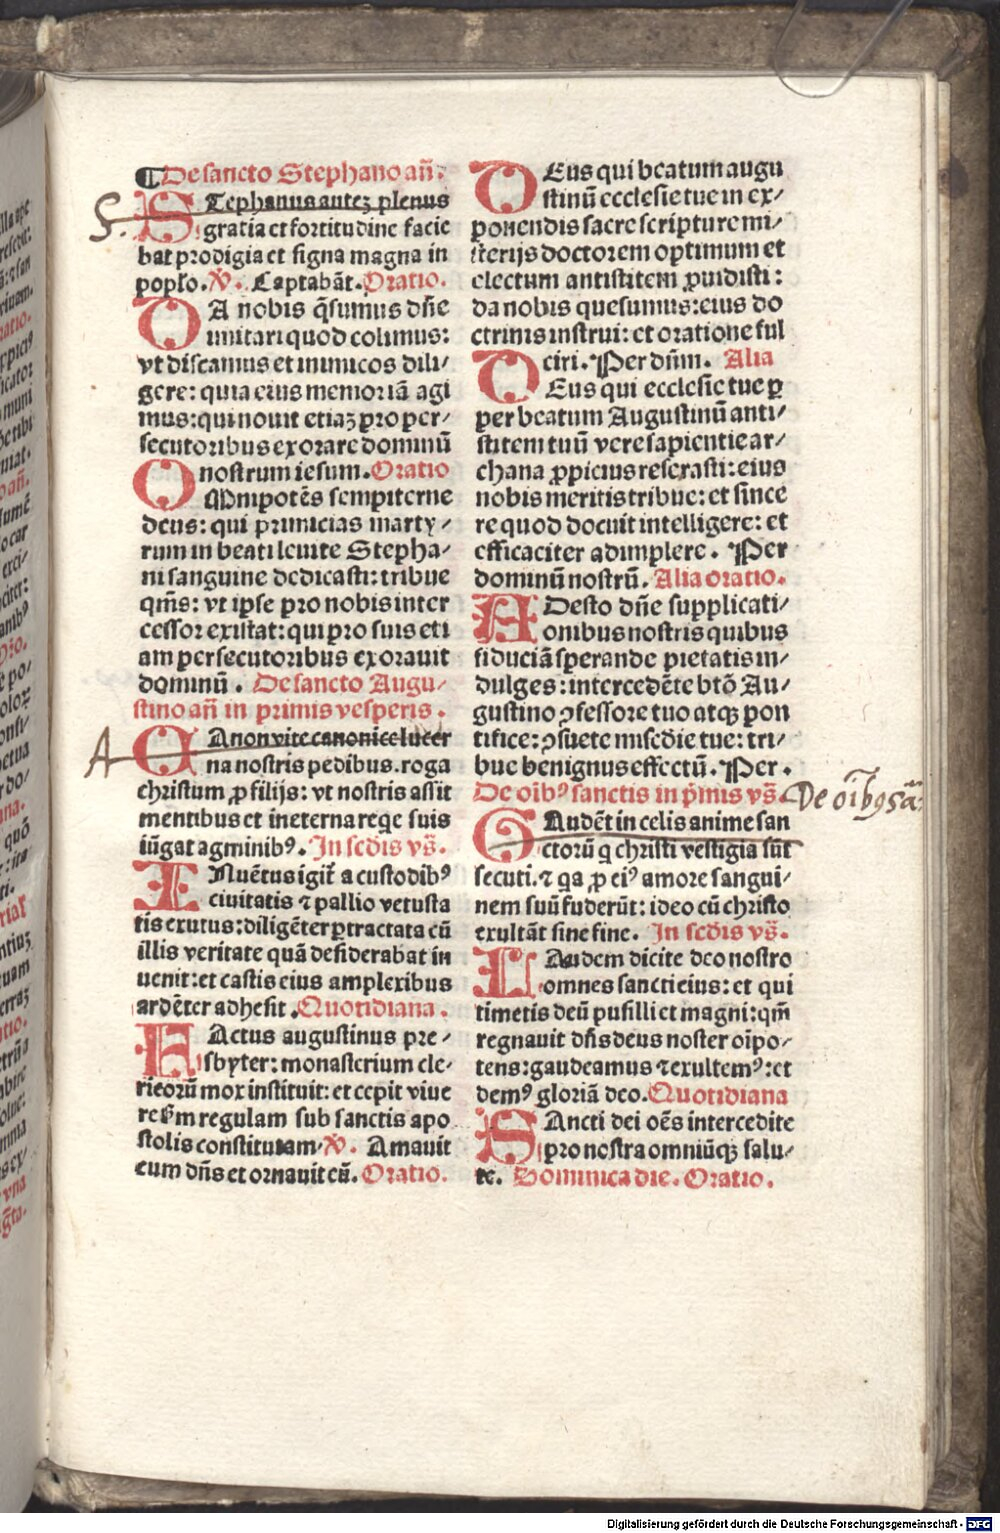 ¶ De sancto Stephano añ.
S.
STephanus autez plenus
gratia et fortitudine facie
bat prodigia et signa magna in
poplo. V. Captabāt. Oratio.
DA nobis q̄sumus dn̄e
imitari quod colimus:
vt discamus et inimicos dili⸗
gere: quia eius memoriā agi
mus: qui nouit etiaz pro per⸗
secutoribus exorare dominū
nostrum iesum. Oratio
OMnipotēs sempiterne
deus: qui primicias marty⸗
rum in beati leuite Stepha⸗
ni sanguine dedicasti: tribue
qm̄s: vt ipse pro nobis inter
cessor existat: qui pro suis eti
am persecutoribus exorauit
dominū. De sancto Augu⸗
stino añ in primis vesperis.
A
CAnon vite canonice lucer
na nostris pedibus. roga
christum ꝓ filijs: vt nostris assit
mentibus et in eterna reqe suis
iūgat agminibꝰ. In scd̄is vs̄.
INuētus igit̄ a custodibꝰ
ciuitatis ⁊ pallio vetusta
tis exutus: diligēter ꝑtractata cū
illis veritate quā desiderabat in
uenit: et castis eius amplexibus
ardēter adhesit. Quotidiana.
FActus augustinus pre⸗
sbyter: monasterium cle⸗
ricorū mox instituit: et cepit viue
re ẜm regulam sub sanctis apo
stolis constitutam. V. Amauit
eum dn̄s et ornauit eū. Oratio.
DEus qui beatum augu
stinū ecclesie tue in ex⸗
ponendis sacre scripture mi⸗
sterijs doctorem optimum et
electum antistitem ꝓuidisti:
da nobis quesumus: eius do
ctrinis instrui: et oratione ful
ciri. Per dn̄m. Alia
DEus qui ecclesie tue ꝑ
per beatum Augustinū anti⸗
stitem tuū vere sapientie ar⸗
chana ꝓpicius reserasti: eius
nobis meritis tribue: et since
re quod docuit intelligere: et
efficaciter adimplere. Per
dominū nostrū. Alia oratio.
ADesto dn̄e supplicati⸗
onibus nostris quibus
fiduciā sperande pietatis in⸗
dulges: intercedēte btō Au⸗
gustino ꝯfessore tuo atqꝫ pon
tifice: ꝯsuete misc̄die tue: tri⸗
bue benignus effectū. Per.
De oīb9 sanctis in p̄mis vs̄.
De oībꝯ sā:
GAudēt in celis anime san
ctorū q christi vestigia sūt
secuti. ⁊ qa ꝓ eiꝰ amore sangui⸗
nem suū fuderūt: ideo cū christo
exultāt sine fine. In scd̄is vs̄.
LAudem dicite deo nostro
omnes sancti eius: et qui
timetis deū pusilli et magni: qm̄
regnauit dn̄s deus noster oīpo⸗
tens: gaudeamus ⁊ exultemꝰ: et
demꝰ gloriā deo. Quotidiana
SAncti dei oēs intercedite
pro nostra omniūqꝫ salu⸗
te. Dominica die. Oratio.
Digitalisierung gefördert durch die Deutsche Forschungsgemeinschaft - DFG